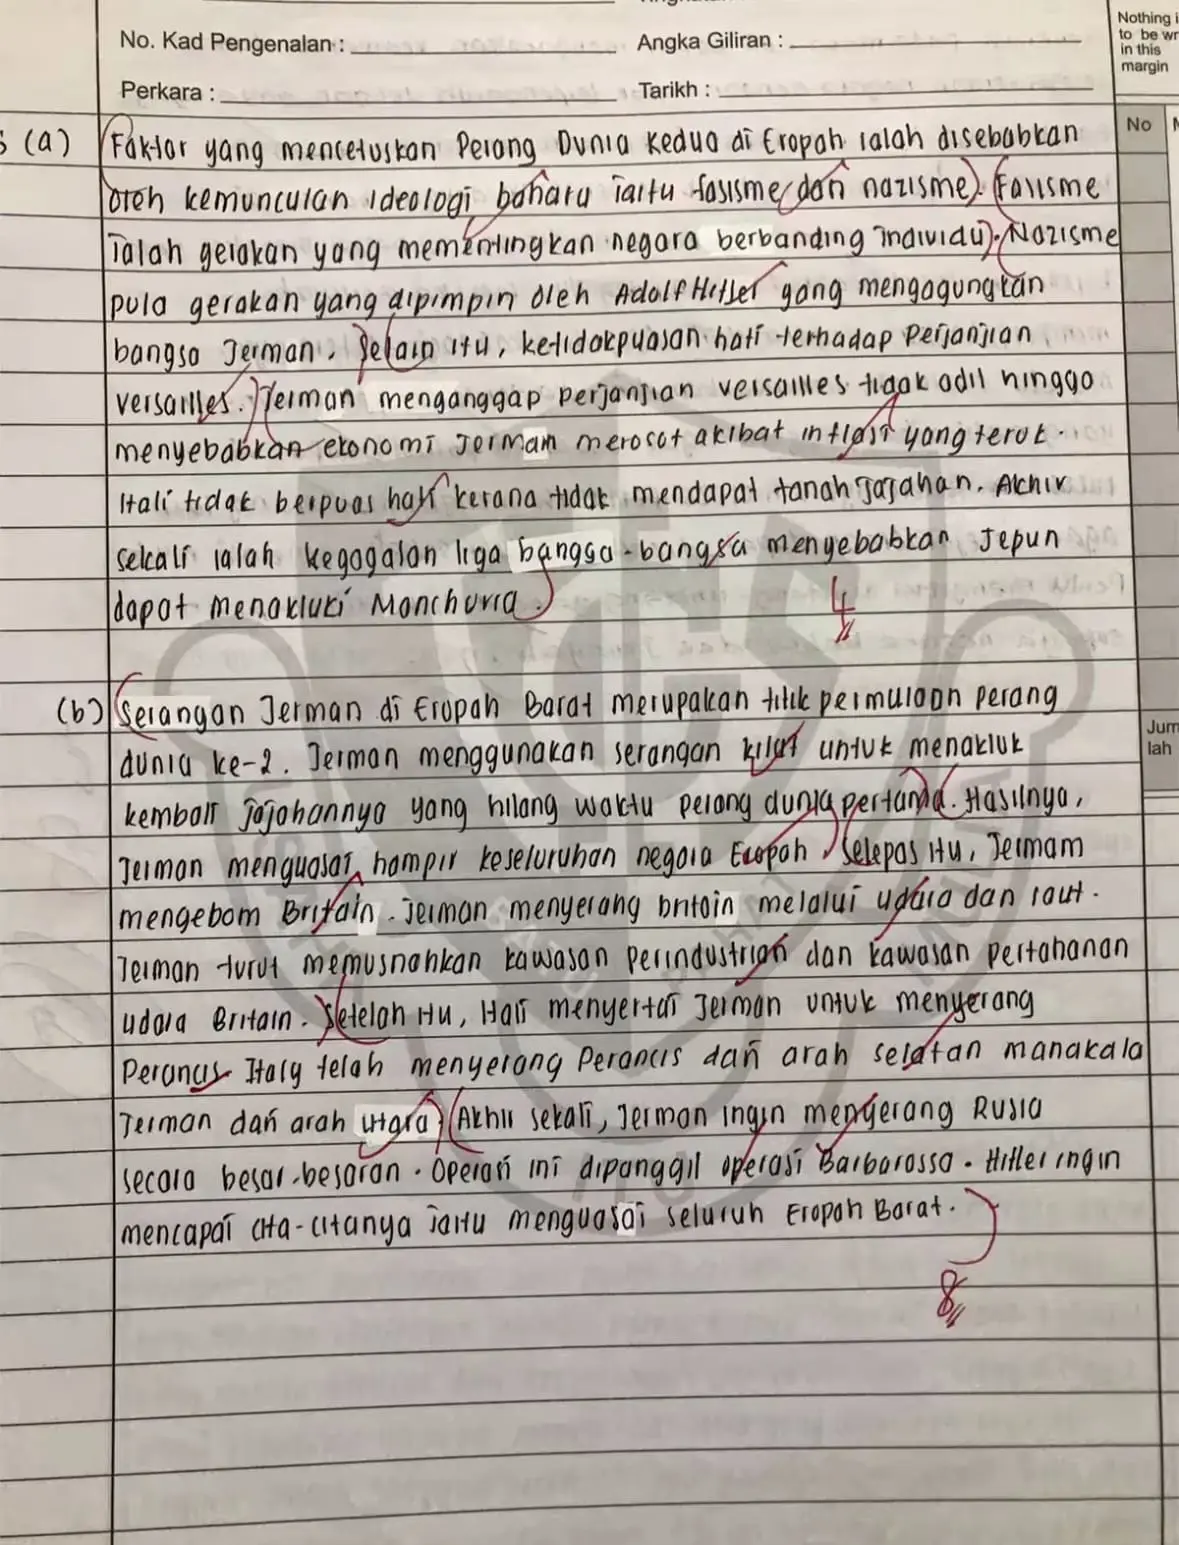 No. Kad Pengenalan :
Angka Giliran :
Nothing i
to be wr
in this
margin
Perkara :
Tarikh :
No
(a) Faktor yang mencetuskan Perang Dunia Kedua di Eropah ialah disebabkan
oleh kemunculan ideologi baharu iaitu fasisme dan nazisme. Fasisme
ialah gerakan yang mementingkan negara berbanding individu. Nazisme
pula gerakan yang dipimpin oleh Adolf Hitler yang mengagungkan
bangsa Jerman. Selain itu, ketidakpuasan hati terhadap Perjanjian
Versailles. Jerman menganggap perjanjian versailles tidak adil hingga
menyebabkan ekonomi Jerman merosot akibat inflasi yang teruk.
Itali tidak berpuas hati kerana tidak mendapat tanah jajahan. Akhir
sekali ialah kegagalan liga bangsa-bangsa menyebabkan Jepun
dapat menakluki Manchuria.
4
(b) Serangan Jerman di Eropah Barat merupakan titik permulaan perang
dunia ke-2. Jerman menggunakan serangan kilat untuk menakluk
kembali jajahannya yang hilang waktu perang dunia pertama. Hasilnya,
Jerman menguasai hampir keseluruhan negara Eropah. Selepas itu, Jermam
mengebom Britain. Jerman menyerang britain melalui udara dan laut.
Jerman turut memusnahkan kawasan perindustrian dan kawasan pertahanan
udara Britain. Setelah itu, Itali menyertai Jerman untuk menyerang
Perancis. Italy telah menyerang Perancis dari arah selatan manakala
Jerman dari arah utara. Akhir sekali, Jerman ingin menyerang Rusia
secara besar-besaran. Operasi ini dipanggil operasi Barbarossa. Hitler ingin
mencapai cita-citanya iaitu menguasai seluruh Eropah Barat.
8
Jum
lah